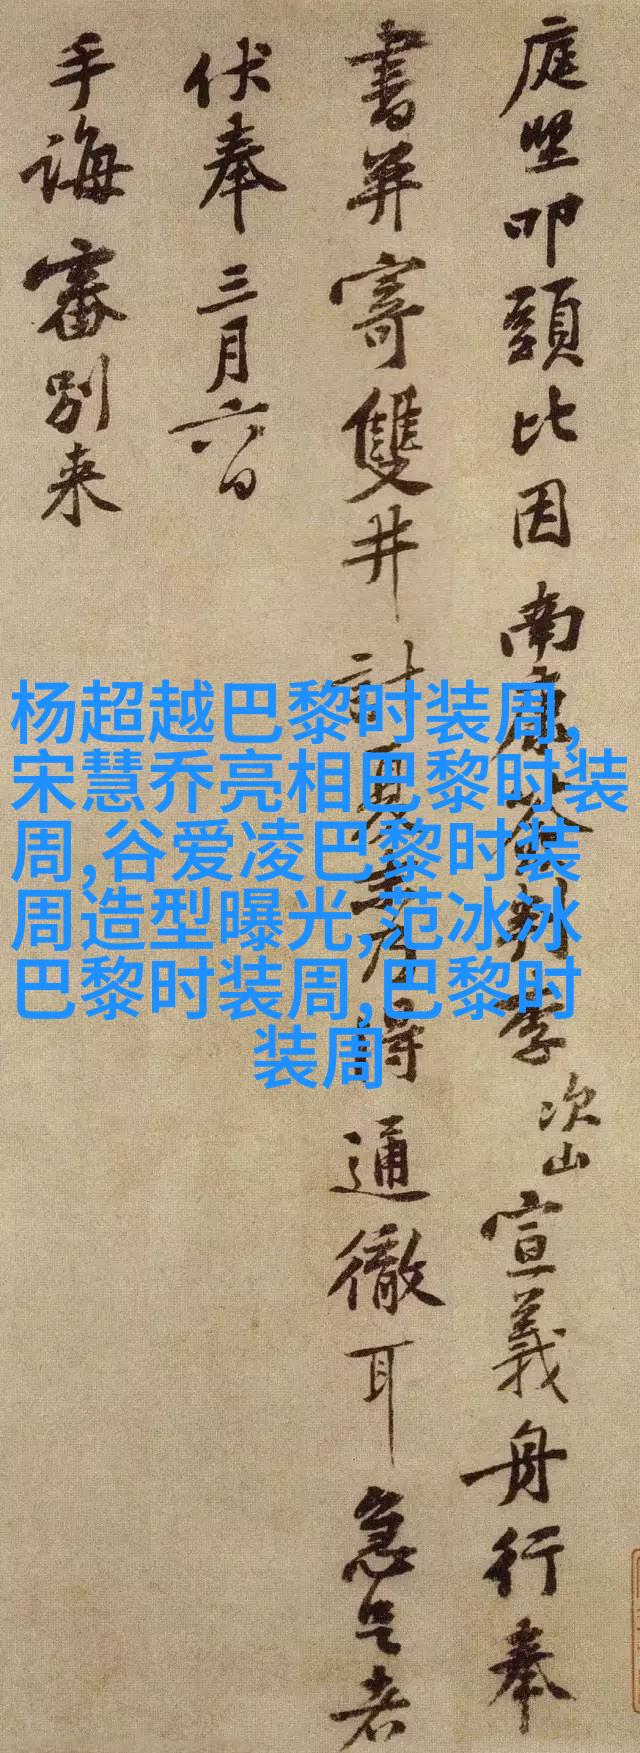 庭堅叩頭比因南康簽判李次山宣義舟行奉
書并寄雙井計夏得通徹耳急足者
伏奉三月六日
手誨審別来
杨超越巴黎时装周,
宋慧乔亮相巴黎时装
周,谷爱凌巴黎时装
周造型曝光,范冰冰
巴黎时装周,巴黎时
装周